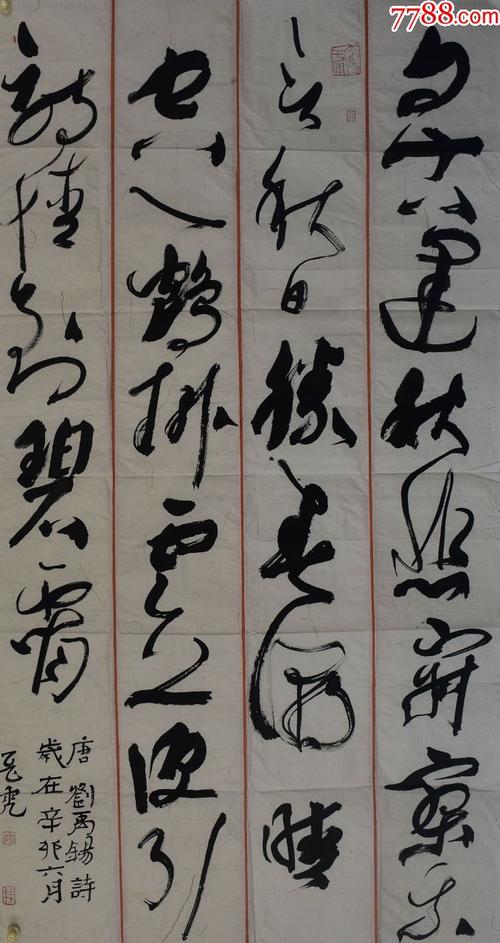 7788.com
自古逢秋悲寂寥我
言秋日勝春朝晴
空一鶴排雲上便引
詩情到碧霄
唐劉禹錫詩
歲在辛卯六月